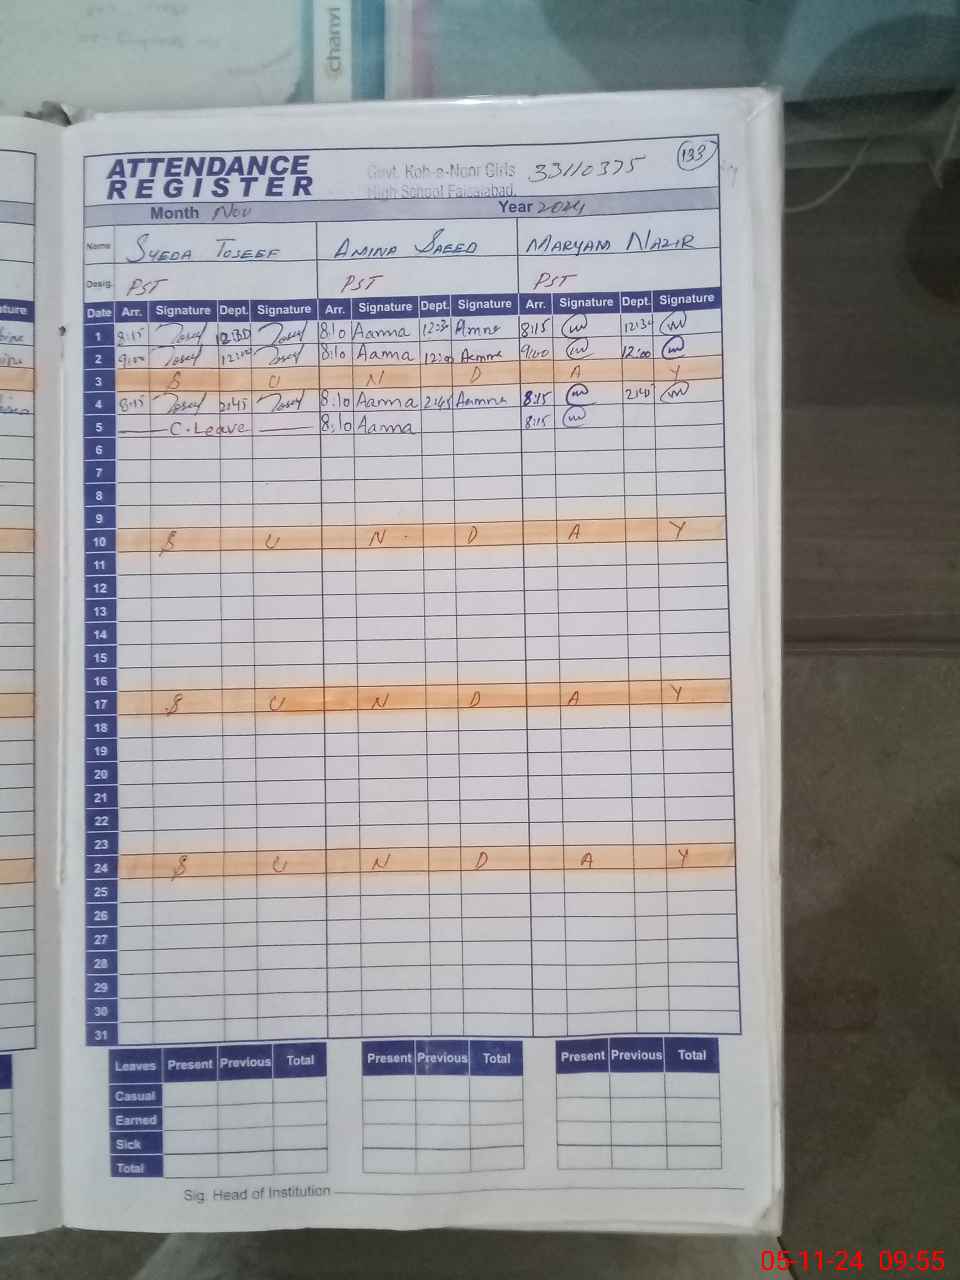 chanyi
ATTENDANCE
REGISTER
Govt. Koh-e-Noor Girls
High School Faisalabad.
33110375
133
Month Nov Year 2024
Name Syeda Toseef Amina Saeed Maryam Nazir
Desig. PST PST PST
Date Arr. Signature Dept. Signature Arr. Signature Dept. Signature Arr. Signature Dept. Signature
1 8:15 Tosef 12:30 Tosef 8:10 Aamna 12:30 Amne 8:15 12:30
2 9:00 Tosef 12:00 Tosef 8:10 Aamna 12:00 Aamne 9:00 12:00
3 S U N D A Y
4 8:15 Tosef 2:45 Tosef 8:10 Aamna 2:45 Aamne 8:15 2:40
5 C.Leave 8:10 Aamna 8:15
6
7
8
9
10 S U N D A Y
11
12
13
14
15
16
17 S U N D A Y
18
19
20
21
22
23
24 S U N D A Y
25
26
27
28
29
30
31
Leaves Present Previous Total Present Previous Total Present Previous Total
Casual
Earned
Sick
Total
Sig. Head of Institution
05-11-24 09:55